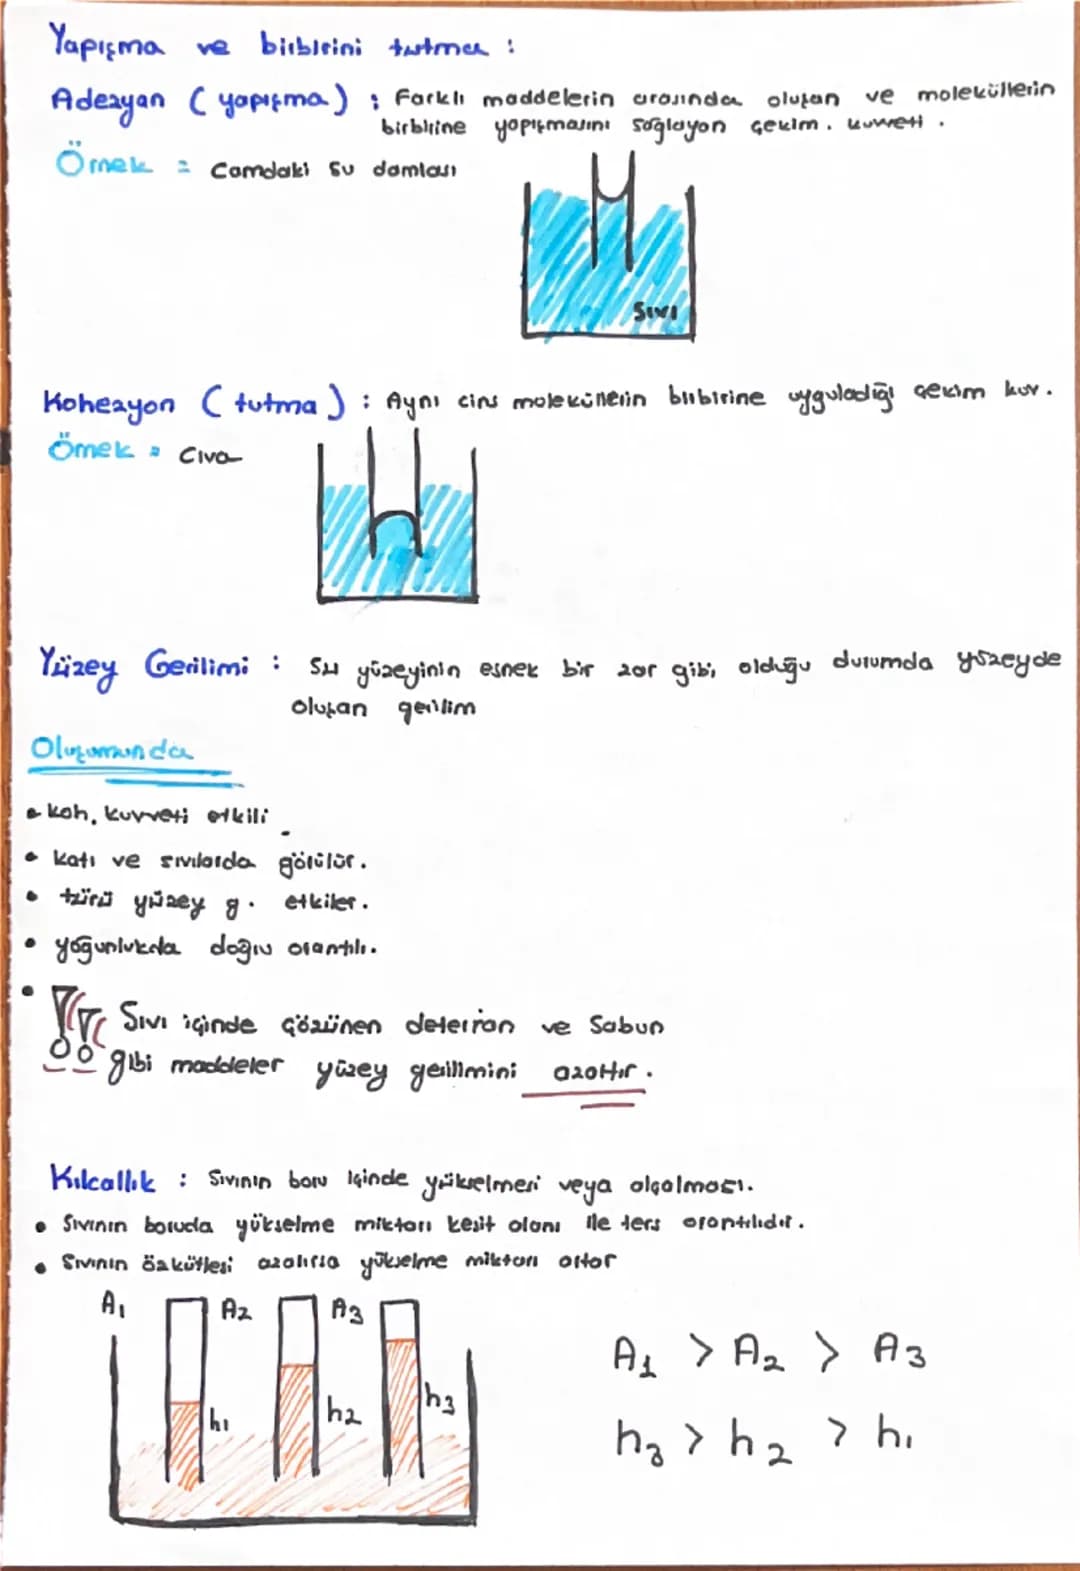 Yapışma ve birbirini tutma :
Adezyon ( yapışma ) : Farklı maddelerin arasında oluşan ve moleküllerin
birbirine yapışmasını sağlayan çekim. kuvveti .
Örnek = Camdaki su damlası
Sıvı
Kohezyon ( tutma ) : Aynı cins moleküllerin birbirine uyguladığı çekim kuv.
Örnek = Cıva
Yüzey Gerilimi : Su yüzeyinin esnek bir zar gibi, olduğu durumda yüzeyde
oluşan gerilim
Oluşumunda
• koh, kuvveti etkili .
• katı ve sıvılarda görülür.
• türü yüzey g. etkiler.
• yoğunlukda doğru orantılı.
• !! Sıvı içinde çözünen deterjan ve Sabun
gibi maddeler yüzey gerilimini azaltır.
Kılcallık : Sıvının boru içinde yükselmesi veya alçalması.
• Sıvının boruda yükselme miktarı kesit alanı ile ters orantılıdır.
• Sıvının özkütlesi azalırsa yükselme miktarı artar
A1 A2 A3
h1 h2 h3
A1 > A2 > A3
h3 > h2 > h1